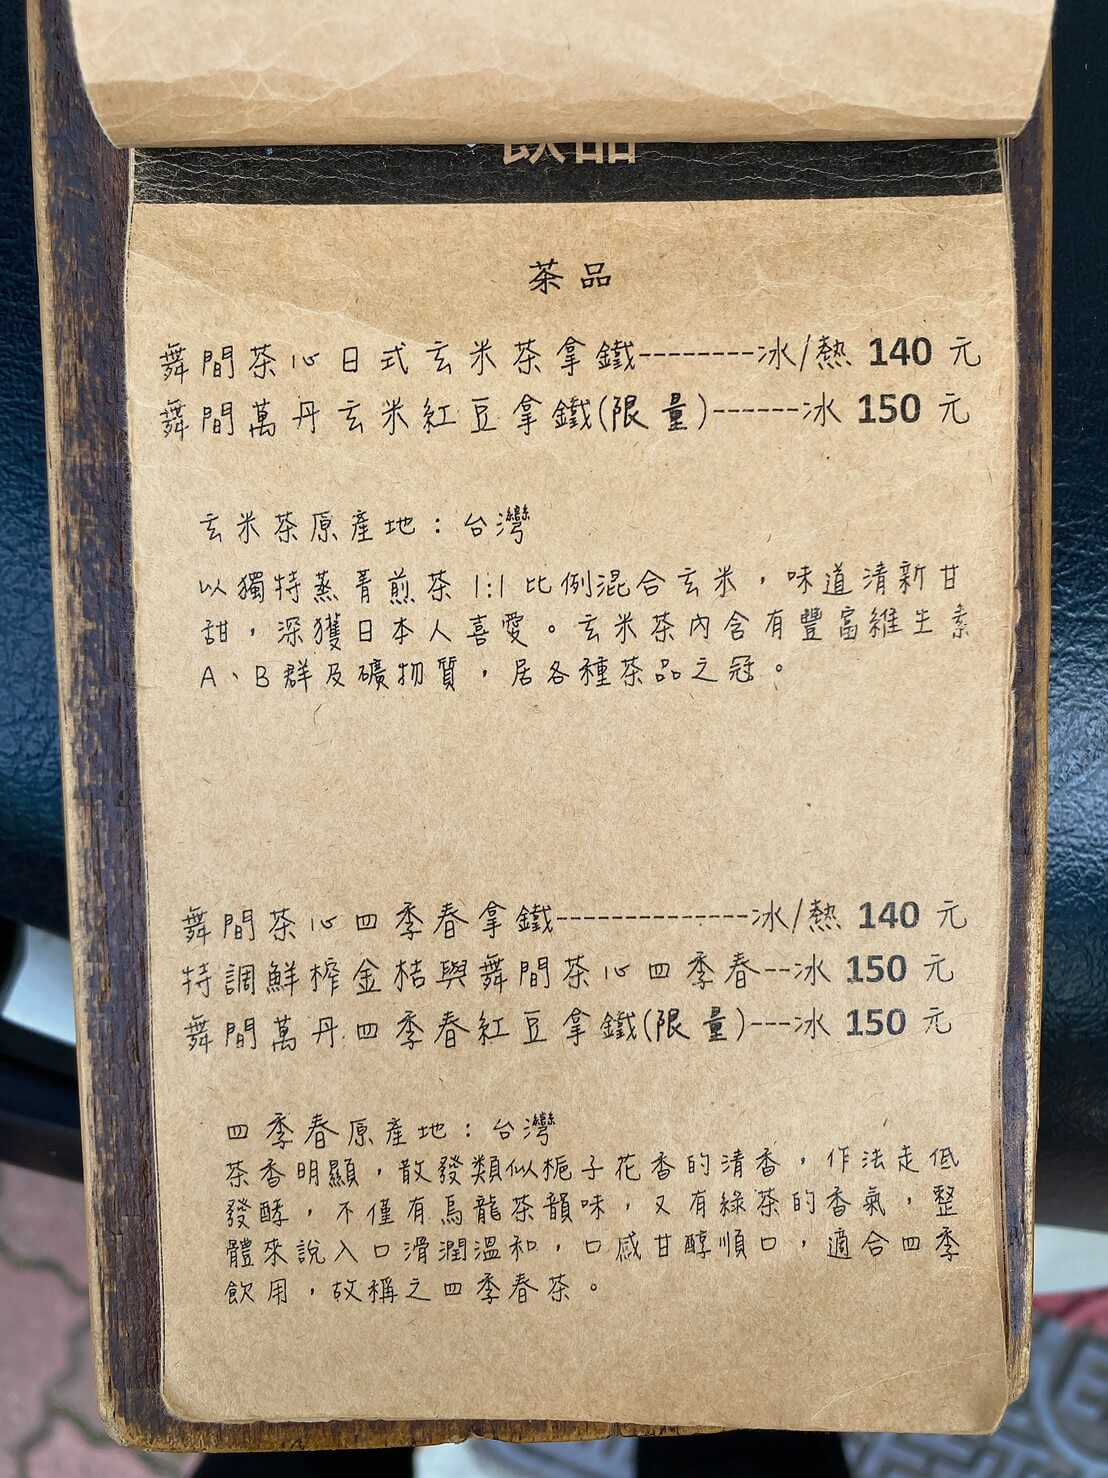 飲品
茶品
舞間茶心日式玄米茶拿鐵--------冰/熱 140 元
舞間萬丹玄米紅豆拿鐵(限量)------冰 150 元
玄米茶原產地：台灣
以獨特蒸菁煎茶 1:1 比例混合玄米，味道清新甘
甜，深獲日本人喜愛。玄米茶內含有豐富維生素
A、B群及礦物質，居各種茶品之冠。
舞間茶心四季春拿鐵--------------冰/熱 140 元
特調鮮榨金桔與舞間茶心四季春--冰 150 元
舞間萬丹四季春紅豆拿鐵(限量)---冰 150 元
四季春原產地：台灣
茶香明顯，散發類似梔子花香的清香，作法走低
發酵，不僅有烏龍茶韻味，又有綠茶的香氣，整
體來說入口滑潤溫和，口感甘醇順口，適合四季
飲用，故稱之四季春茶。